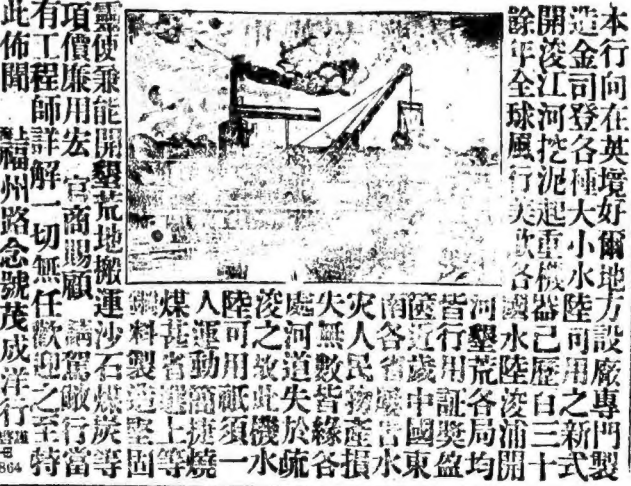 本行向在英境好爾地方設廠專門製
造金司登各種大小水陸可用之新式
開浚江河挖泥起重機器已歷百三十
餘年全球風行美歐各國水陸浚浦開
河墾荒各局均
皆行用証獎盈
篋近歲中國東
南各省害水
灾人民物產損
失無數皆緣各
處河道失於疏
浚之故此機水
陸可用祇須一
人運動簡捷燒
煤甚省上等
鋼料製造堅固
靈使兼能開墾荒地搬運沙石煤炭等
項價廉用宏 官商賜顧 請駕行當
有工程師詳解一切無任歡迎之至特
此佈聞 上海福州路念號茂成洋行謹啓
864